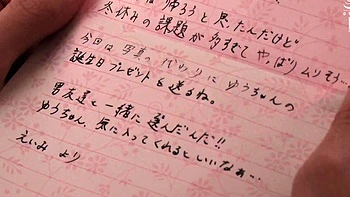 冬休みの課題が多すぎてやっぱりムリそう…
今回は写真の代わりにゆうちゃんの
誕生日プレゼントを送るね。
男友達と一緒に選んだんだ!!
ゆうちゃん、気に入ってくれるといいなぁ…
えいみより